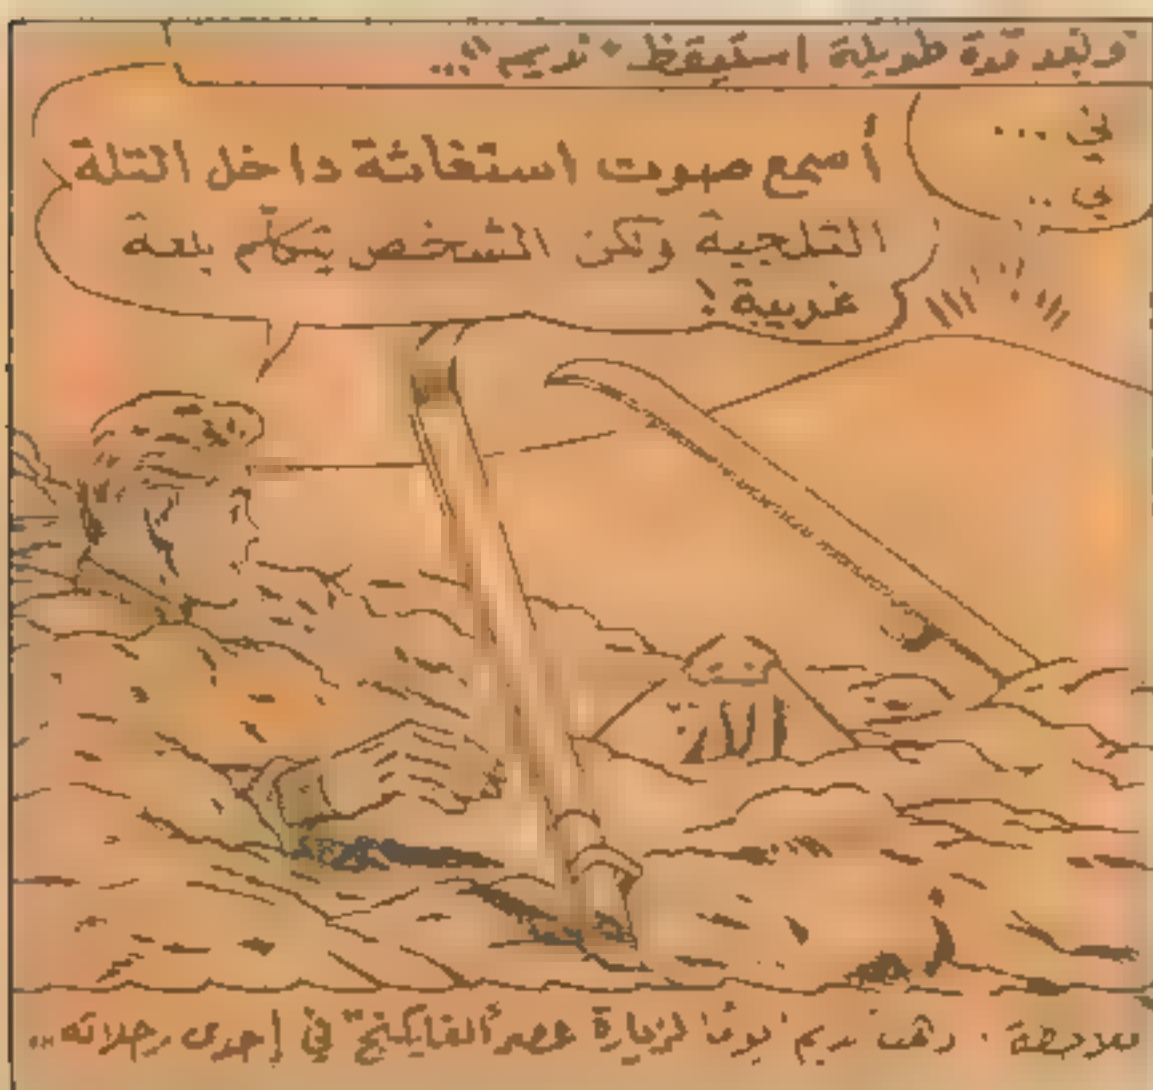 وبعد فترة طويلة استيقظ "ريم"...
في ...
في ..
أسمع صوت استغاثة داخل التلة
الثلجية ولكن الشخص يتكلم بلغة
غريبة !
ملاحظة : ذهب ريم يومًا لزيارة عصر "الفايكنج" في إحدى رحلاته ..